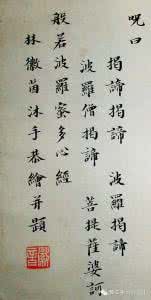 呪曰
揭諦揭諦 波羅揭諦
波羅僧揭諦 菩提薩婆訶
般若波羅蜜多心經
林徽茵沐手恭繪并題